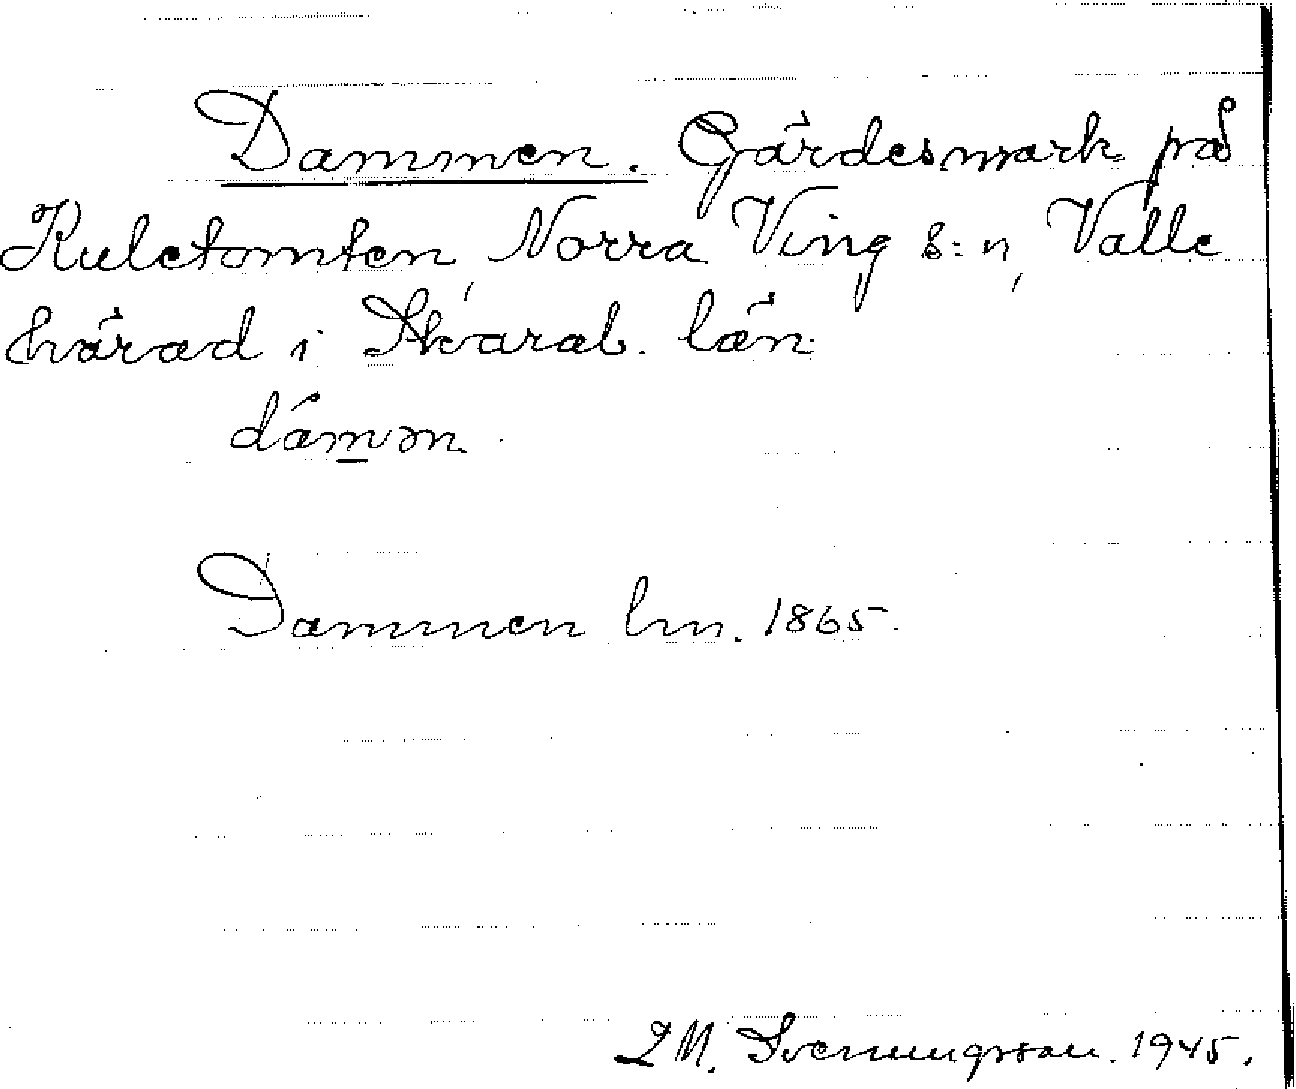 Dammen. Gärdesmark på
Kuletomten, Norra Ving s:n, Valle
härad i Skarab. län.
dámən.
Dammen lm. 1865.
I. M. Svenungsson. 1945.